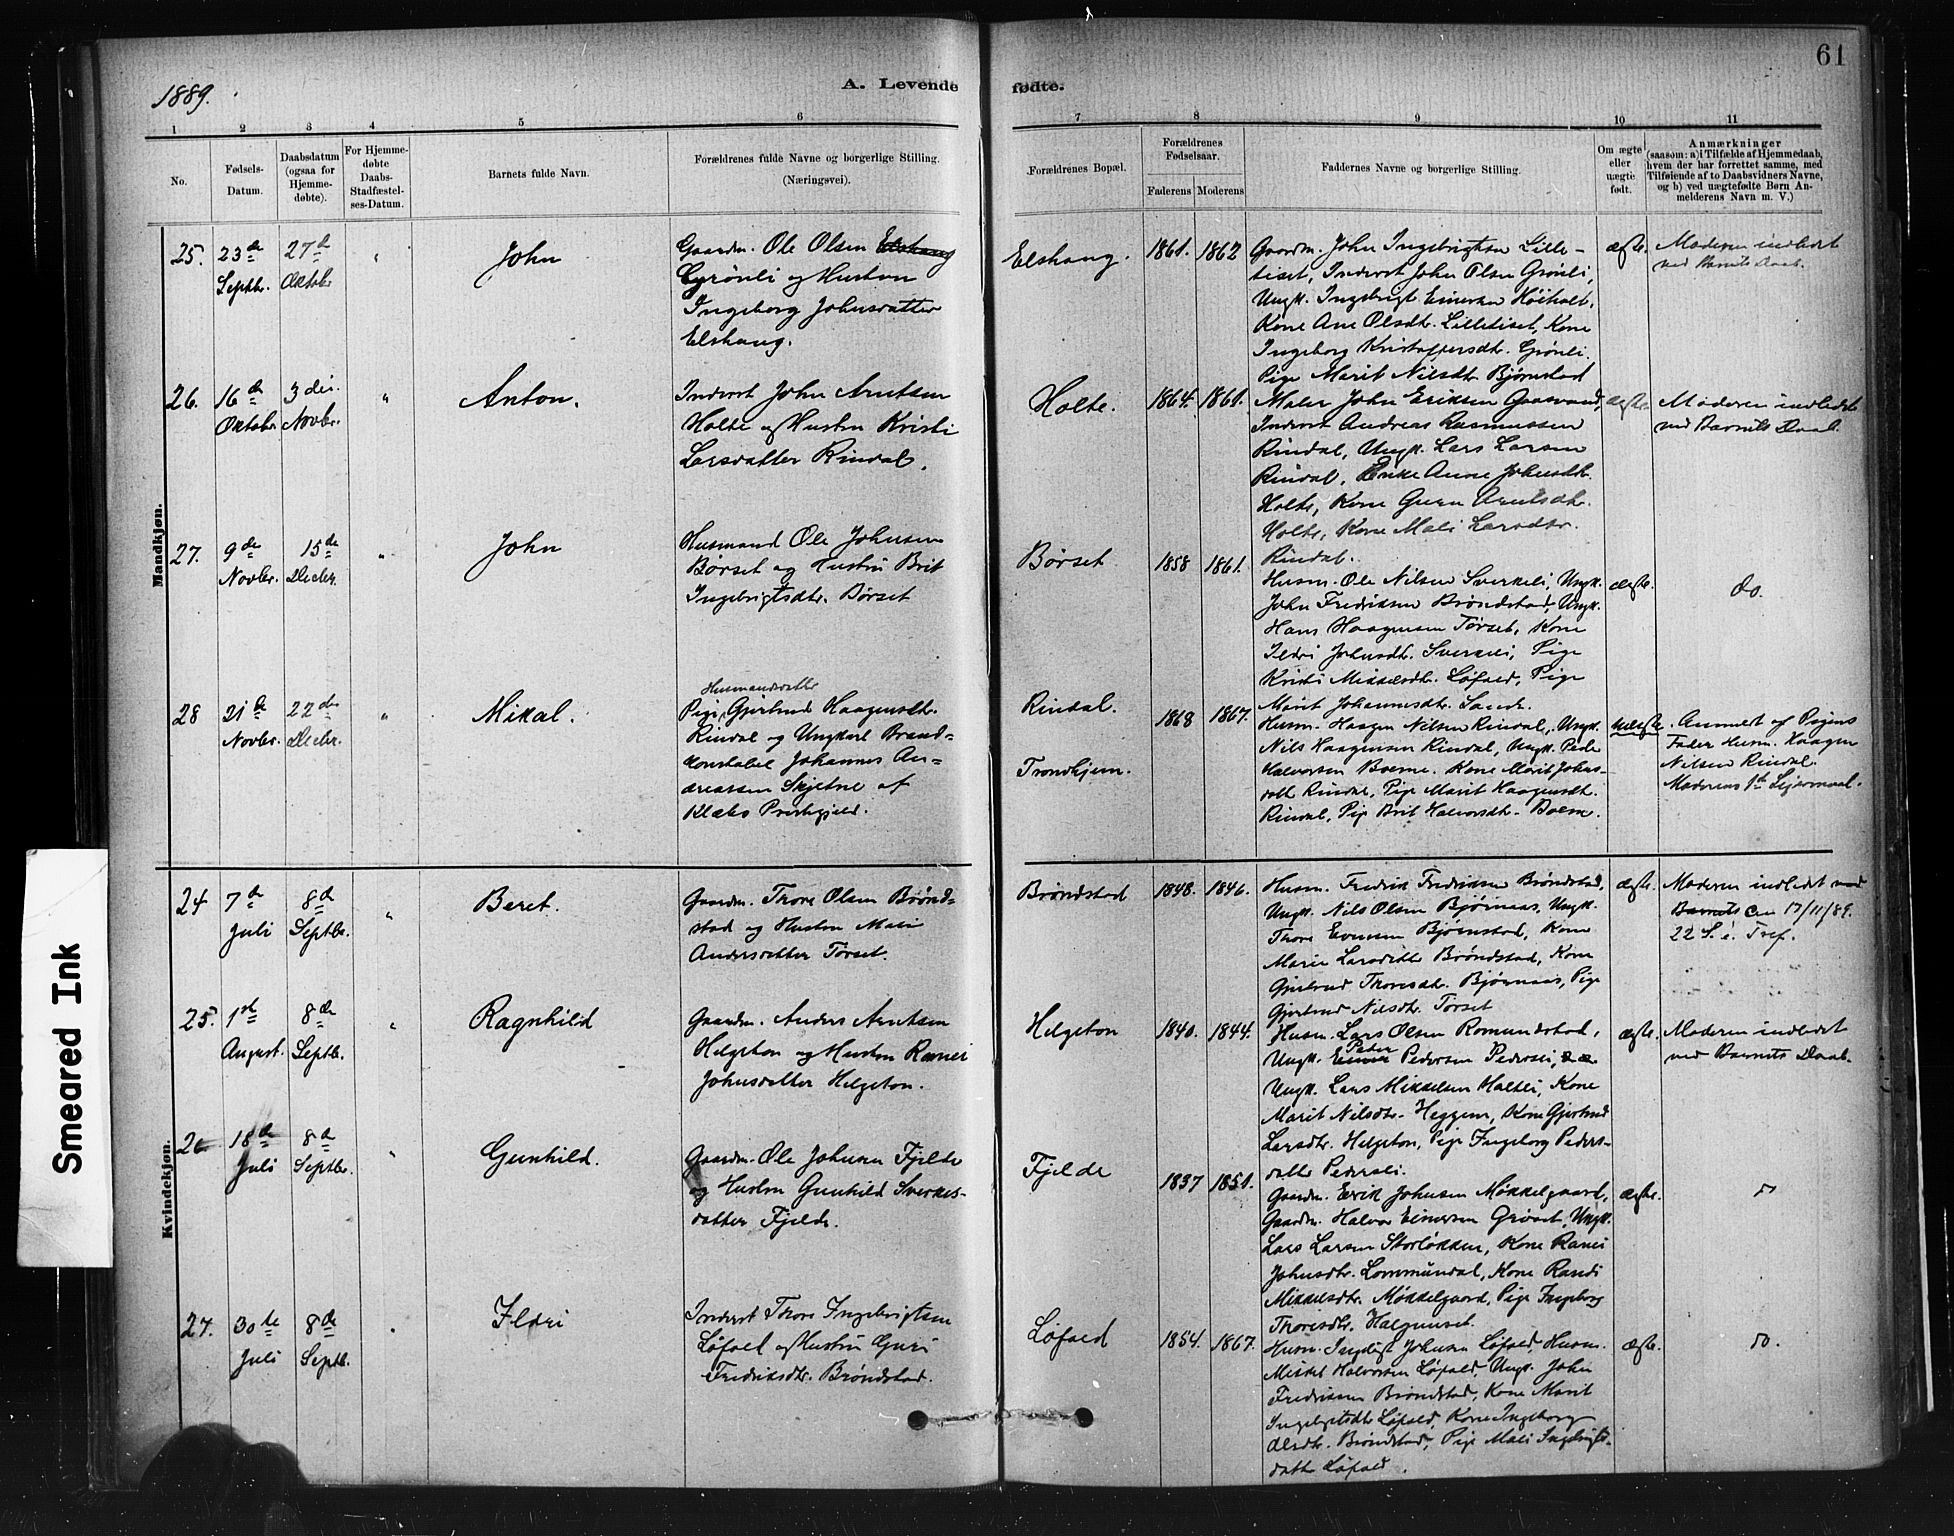 61
1889.
A. Levende fødte.
1 2 3 4 5 6 7 8 9 10 11
No.
Fødsels-
Datum.
Daabsdatum
(ogsaa for
Hjemme-
døbte).
For Hjemme-
døbte
Daabs-
Stadfæstel-
ses-Datum.
Barnets fulde Navn.
Forældrenes fulde Navne og borgerlige Stilling.
(Næringsvei).
Forældrenes Bopæl.
Forældrenes
Fødselsaar.
Faderens Moderens
Faddernes Navne og borgerlige Stilling.
Om ægte
eller
uægte
født.
Anmærkninger
(saasom: a) i Tilfælde af Hjemmedaab,
hvem der har forrettet samme, med
Tilføiende af to Daabsvidners Navne,
og b) ved uægtefødte Børn An-
melderens Navn m. V.)
Mandkjøn.
25.
23de
Septbr.
27de
Oktobr
"
John
Gaardm. Ole Olsen Elshaug
Grönli og Hustru
Ingeborg Johnsdatter
Elshaug.
Elshaug.
1861. 1862
Gaardm. John Ingebrigtsen Lille-
tiset, Inderst John Olsen Grönli,
Ungk. Ingebrigt Einersen Höiholt,
Kone Ane Olsdtr. Lilletiset, Kone
Ingeborg Kristoffersdtr. Grönli.
Pige Marit Nilsdtr Bjørnstad
ægte.
Moderen indledet
ved Barnets Daab.
26.
16de
Oktobr.
3die
Novbr.
"
Anton.
Inderst John Arntsen
Holte og Hustru Kristi
Larsdatter Rindal.
Holte.
1864. 1861.
Maler John Eriksen Gaasvand,
Inderst Andreas Rasmussen
Rindal, Ungk. Lars Larsen
Rindal, Enke Anne Johnsdtr.
Holte, Kone Guru Arntsdtr.
Holte, Kone Mali Larsdtr.
Rindal.
ægte.
Moderen indledet
ved Barnets Daab.
27.
9de
Novbr.
15de
Decbr.
"
John
Husmand Ole Johnsen
Børset og Hustru Brit
Ingebrigtsdtr. Børset
Børset
1858 1861.
Husm. Ole Nilsen Sverkeli, Ungk.
John Fredriksen Brøndstad, Ungk.
Hans Haagensen Tørset, Kone
Ildri Johnsdtr. Sverkeli, Pige
Kristi Mikkelsdtr. Løfald, Pige
Marit Johannesdtr. Sande.
ægte.
do.
28
21de
Novbr.
22de
Decbr.
"
Mikal.
Husmandsdatter
Pige, Gjertrud Haagensdtr.
Rindal og Ungkarl Brand-
konstabel Johannes An-
dreassen Skjetne af
Klæbo Præstegjeld.
Rindal.
Trondhjem.
1868 1867.
Husm. Haagen Nilsen Rindal, Ungk.
Nils Haagensen Rindal, Ungk. Peder
Halvorsen Boeme. Kone Marit Johns-
datt Rindal, Pige Marit Haagensdt.
Rindal, Pige Brit Halvorsdtr. Boeme.
Uægte
Anmeldt af Pigens
Fader Husm. Haagen
Nilsen Rindal.
Moderens 1ste Leiermaal.
Kvindekjøn.
24
7de
Juli
8de
Septbr.
"
Beret.
Gaardm. Thore Olsen Brønd-
stad og Hustru Mari
Andersdatter Torset.
Brøndstad
1848. 1846.
Husm. Fredrik Fredriksen Brøndstad,
Ungk. Nils Olsen Bjørnaas, Ungk.
Thore Evensen Bjørnstad, Kone
Marie Larsdtr Brøndstad, Kone
Gjertrud Thoresdtr. Bjørnaas, Pige
Gjertrud Nilsdtr. Torset
ægte.
Moderen indledet ved
Barnets den 17/11/89.
22 S. e. Tref.
25.
1ste
August.
8de
Septb.
"
Ragnhild
Gaardm. Anders Arntsen
Helgeton og Hustru Ranei
Johnsdatter Helgeton.
Helgeton
1840. 1844.
Husm. Lars Olsen Romundstad,
Ungk. Einar Peder Pedersen Pedersli,
Ungk. Lars Mikkelsen Haltli, Kone
Marit Nilsdtr. Heggem, Kone Gjertrud
Larsdtr. Helgeton, Pige Ingeborg Peders-
datter Pedersli.
ægte.
Moderen indledet
ved Barnets Daab.
26
18de
Juli
8de
Septbr.
"
Gunhild.
Gaardm. Ole Johnsen Fjelde
og Hustru Gunhild Sverkes-
datter Fjelde.
Fjelde
1837 1851.
Gaardm. Erik Johnsen Møkkelgaard,
Gaardm. Halvor Einersen Grøset, Ungk.
Lars Larsen Storløkken, Kone Ranei
Johnsdtr. Lommundal, Kone Randi
Mikkelsdtr. Møkkelgaard, Pige Ingeborg
Thoresdtr. Halgunset.
ægte.
do
27.
30te
Juli
8de
Septb.
"
Ildri
Inderst Thore Ingebrigtsen
Løfald og Hustru Guri
Fredriksdtr. Brøndstad.
Løfald
1854. 1867.
Husm. Ingebrigt Johnsen Løfald, Husm.
Mikkel Halvorsen Løfald, Ungk. John
Fredriksen Brøndstad, Kone Marit
Ingebrigtsdtr Løfald, Kone Ingeborg
Olsdtr. Brøndstad, Pige Mali Ingebrigts-
datter Løfald.
ægte.
do.
Smeared Ink